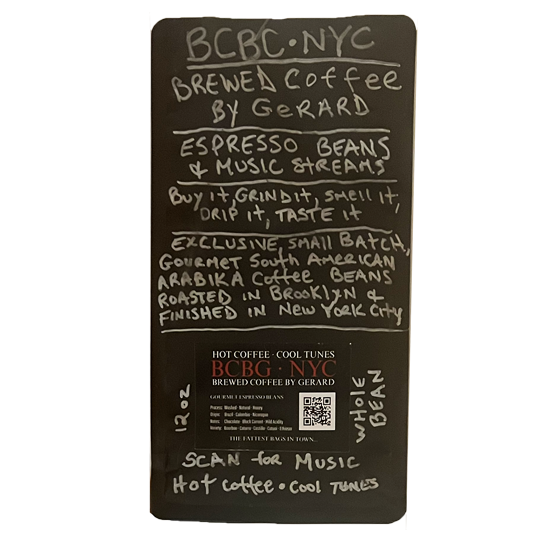 BCBC · NYC
BREWED Coffee
BY GeRARD
ESPRESSO BEANS
& MUSIC STREAMS
BUY it, GRIND it, SMell it,
DRIP it, TASTE it
EXCLUSIVE, SMAll BATCH,
GOURMET South AMERICAN
ARABIKA Coffee BEANS
ROASTED IN BROOKLYN &
FINISHED IN NEW YORK City
HOT COFFEE · COOL TUNES
BCBG · NYC
BREWED COFFEE BY GERARD
GOURMET ESPRESSO BEANS
Process: Washed · Natural · Honey
Origin: Brazil · Colombia · Nicaragua
Notes: Chocolate · Black Currant · Mild Acidity
THE FATTEST BAGS IN TOWN...
12 oz
WHOLE
BEAN
SCAN for MUSIC
Hot coffee · COOL TUNES